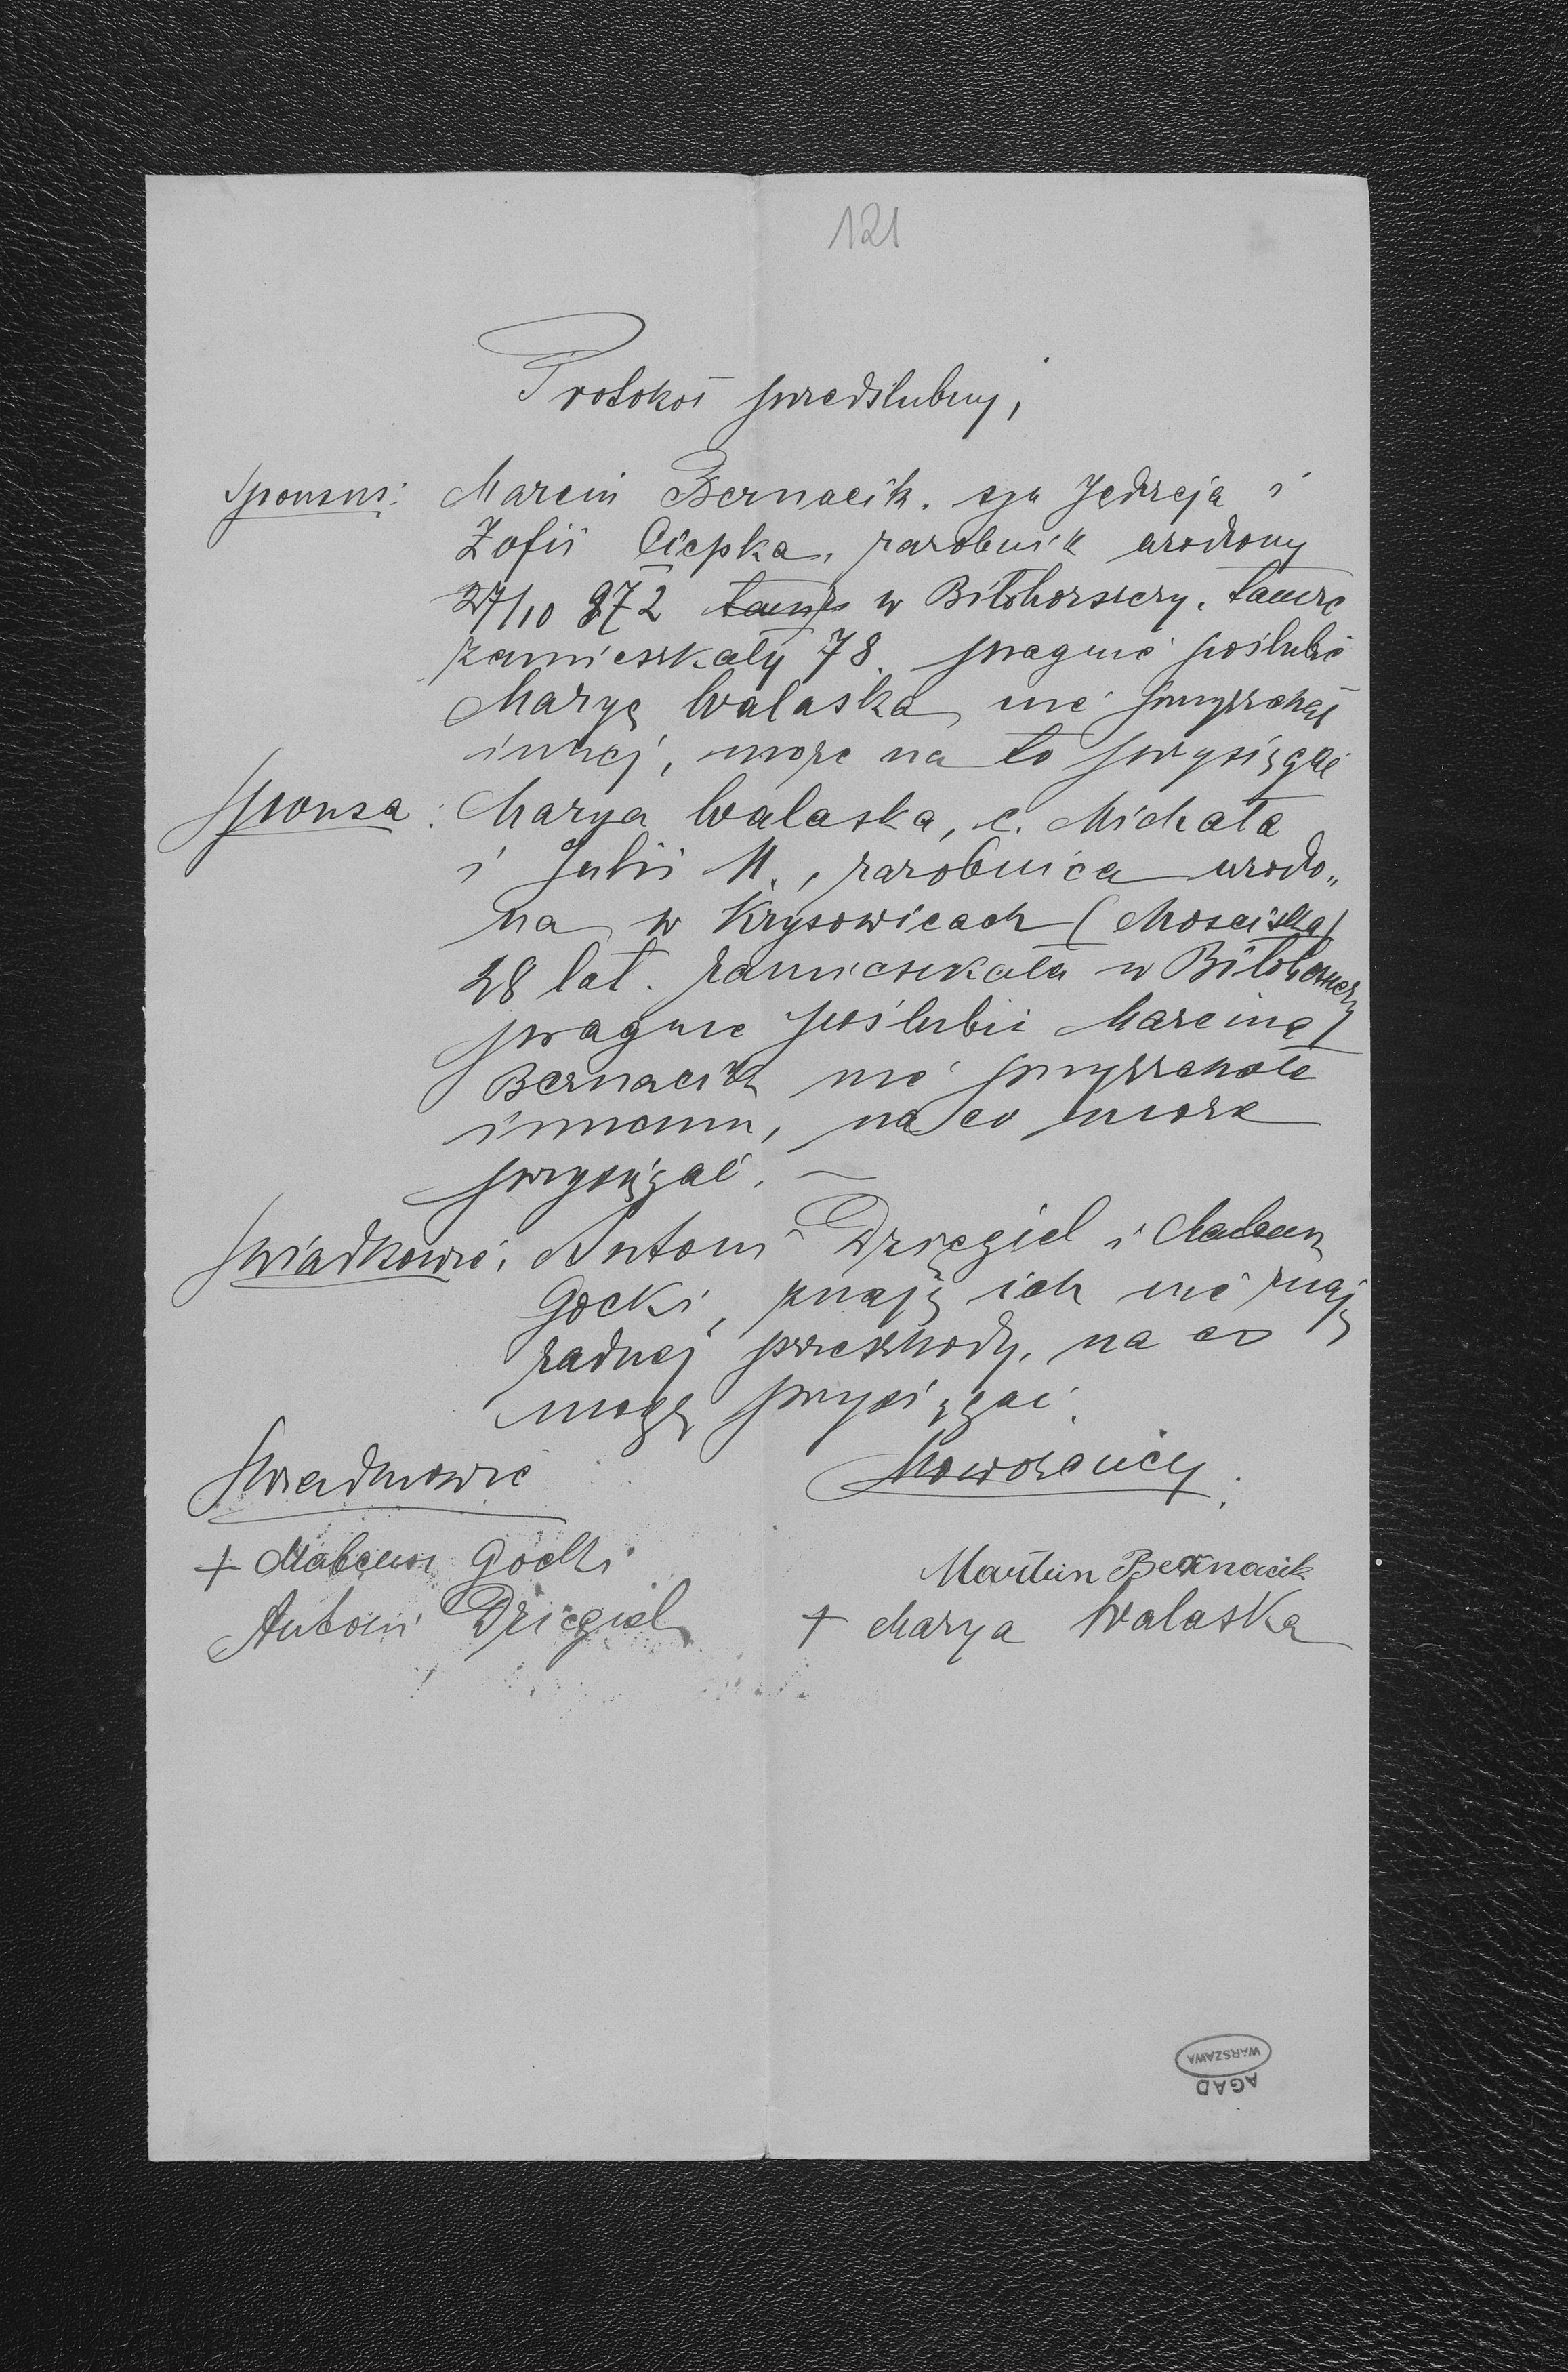 121
Protokół przedślubny,
Sponsus: Marcin Bernacik. syn Jędrzeja i
Zofii Ciepka, zarobnik urodzony
27/10 872 tamże w Biłohorszczy. tamże
zamieszkały 78. pragnie poślubić
Maryę Walaska nie przyrzekał
innej, może na to przysięgać
Sponsa: Marya Walaska, c. Michała
i Julii M., zarobnica urodzo„
na w Krysowicach (Mościska)
28 lat. zamieszkała w Biłohorszczy
pragnie poślubić Marcina
Bernacik nie przyrzekała
innemu, na co może
przysięgać. —
Świadkowie: Antoni Dzięgiel i Mateusz
Gocki, znają ich nie znają
żadnej przeszkody, na co
mogą przysięgać.
Świadkowie
Nowożeńcy.
+ Mateusz Gocki
Martin Bernacik
Antoni Dzięgiel
+ Marya Walaska
WARSZAWA
AGAD